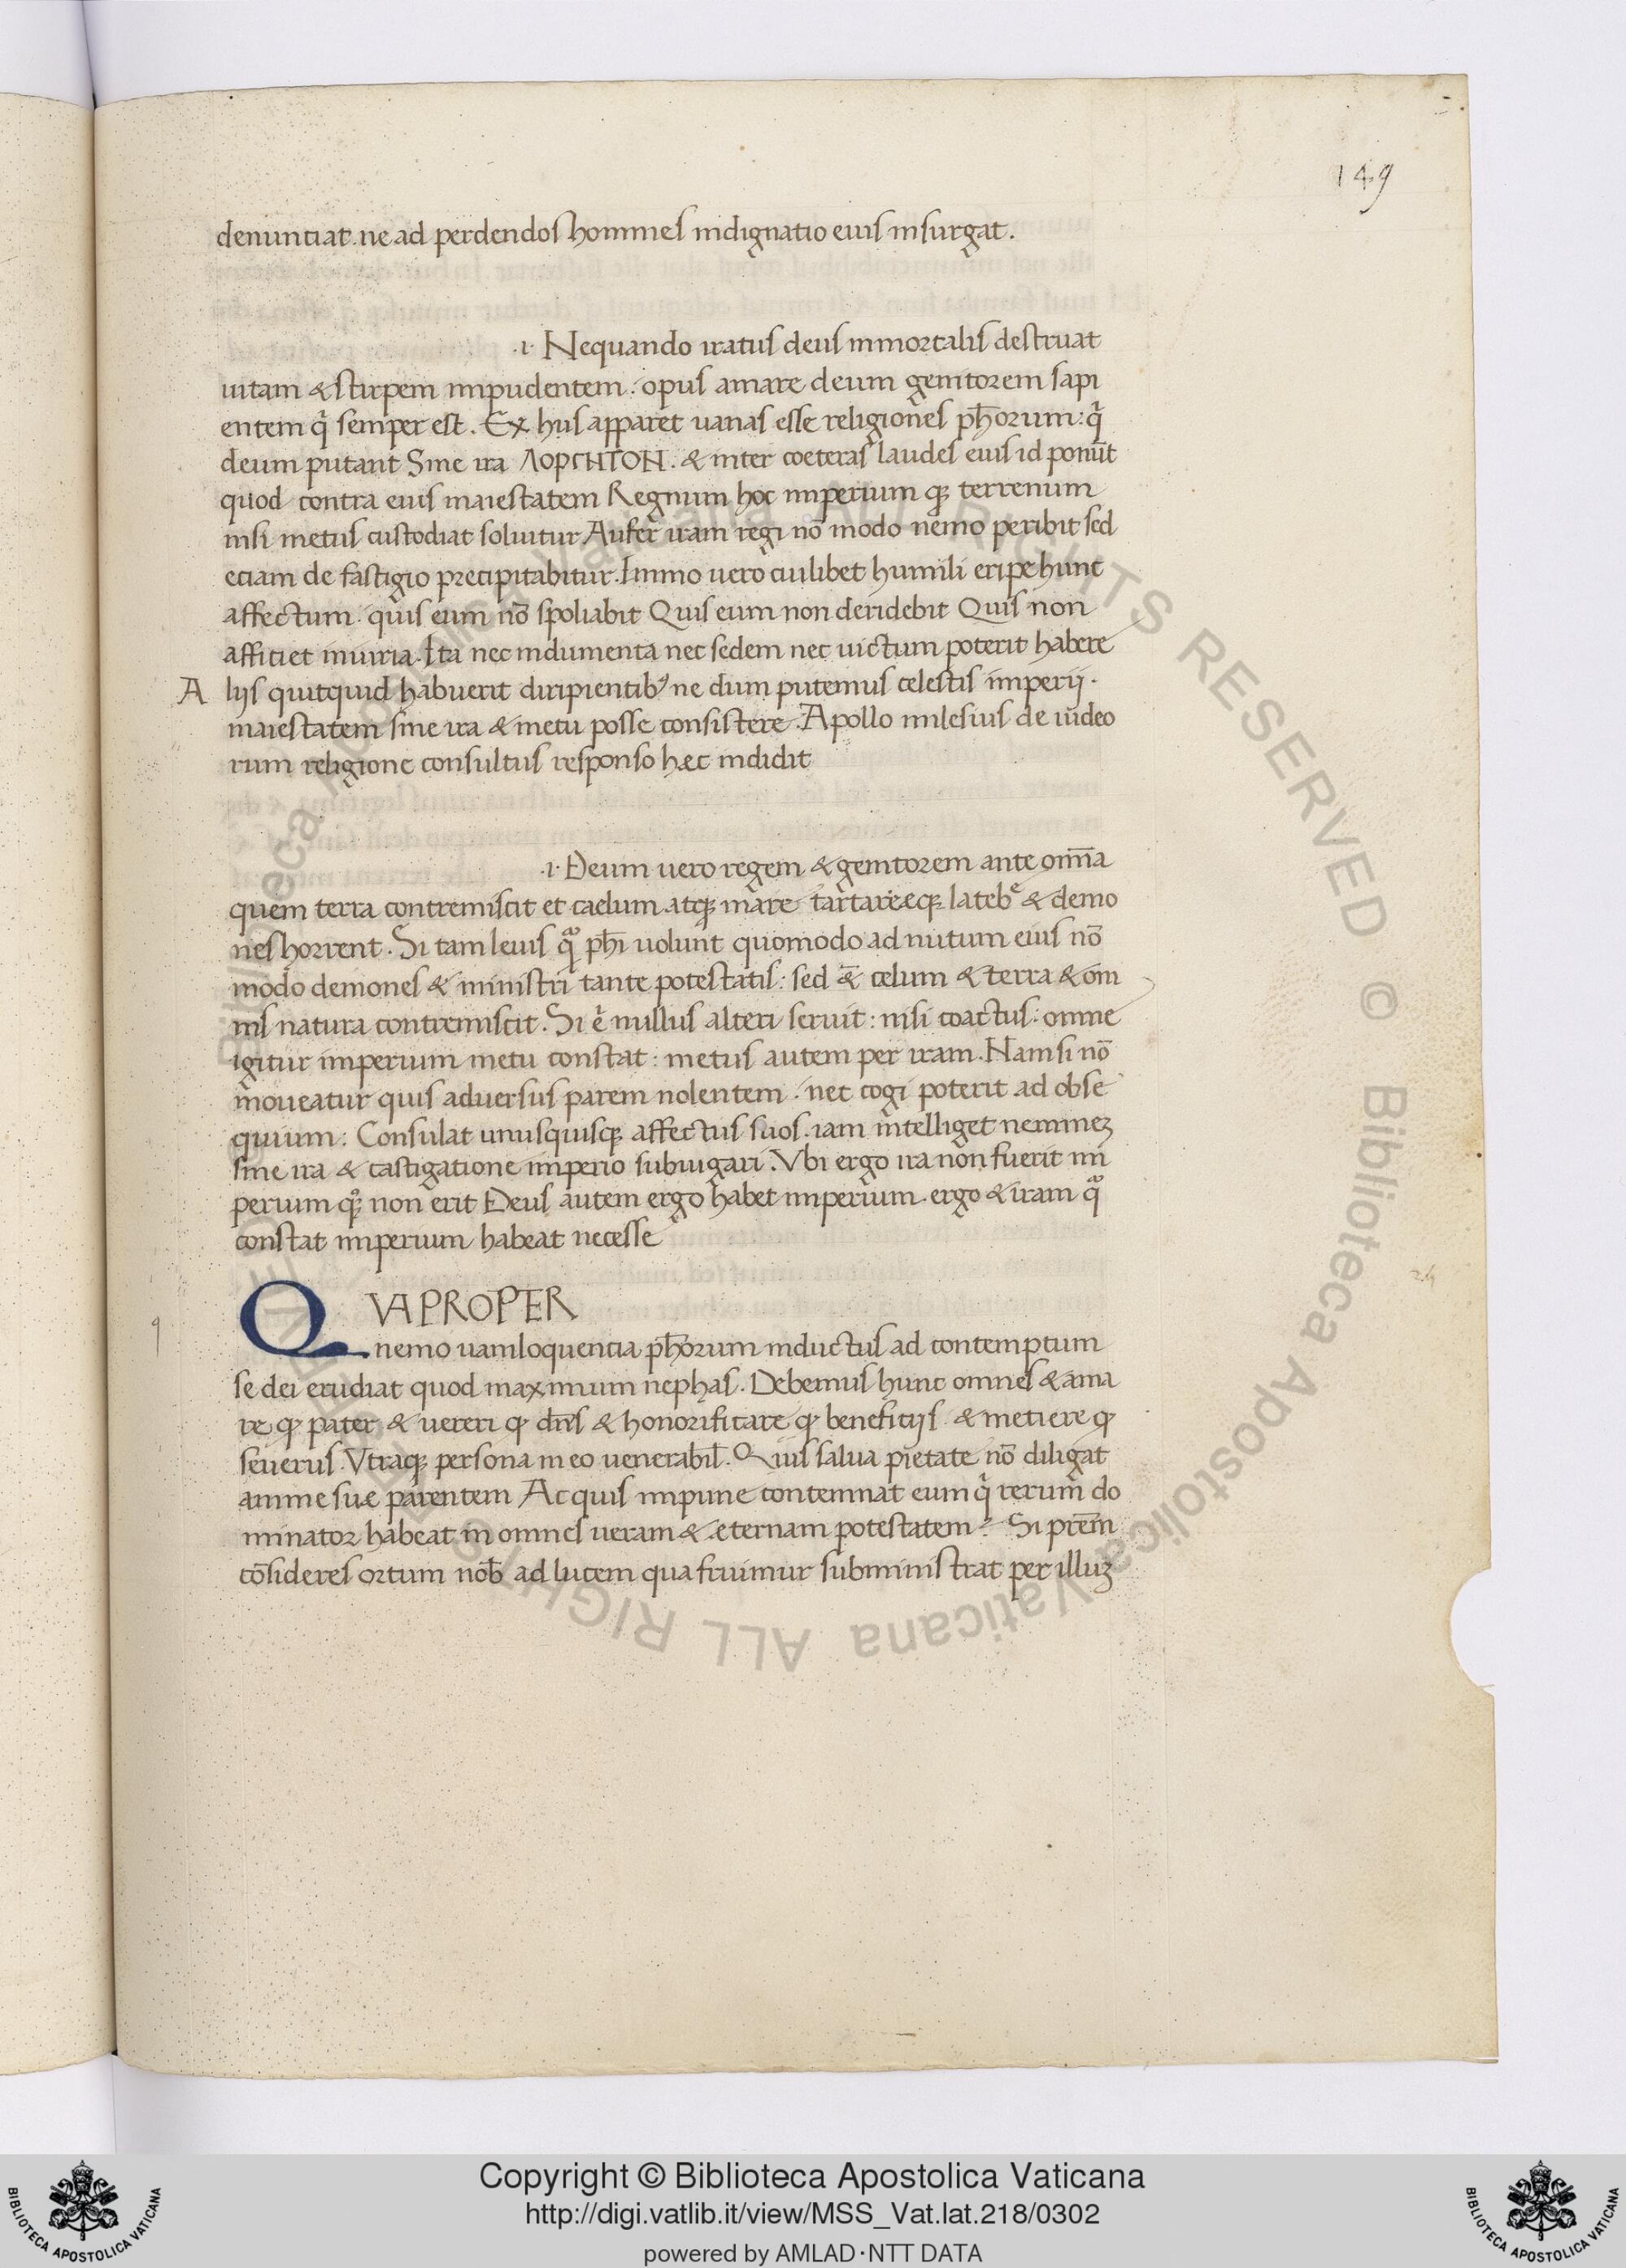 149
denuntiat. ne ad perdendos homines indignatio eius insurgat.
.i. Nequando iratus deus inmortalis destruat
uitam & stirpem impudentem: opus amare deum genitorem sapi
entem q̄ semper est. Ex hiis apparet uanas esse religiones ph̄orum: q̄
deum putant Sine ira ΛΟΡΓΗΤΟΗ. & inter coeteras laudes eius id ponūt
quod contra eius maiestatem Regnum hoc imperium qꝫ terrenum
nisi metus custodiat soluitur Aufer iram regi nō modo nemo peribit sed
eciam de fastigio precipitabitur. Immo uero cuilibet humili eripe hunc
affectum. quis eum nō spoliabit Quis eum non deridebit Quis non
afficiet iniuria. Ita nec indumenta nec sedem nec uictum poterit habere
A liis quitquid habuerit diripientibꝰ ne dum putemus celestis imperii.
maiestatem sine ira & metu posse consistere. Apollo milesius de iudeo
rum religione consultus responso hæc indidit
.i. Deum uero regem & genitorem ante omīa
quem terra contremiscit et caelum atqꝫ mare tartareæqꝫ latebᵉ & demo
nes horrent. Si tam leuis qͦ ph̄i uolunt quomodo ad nutum eius nō
modo demones & ministri tante potestatis: sed &̄ celum & terra & om
nis natura contremiscit. Si ē nullus alteri seruit: nisi coactus: omne
igitur imperium metu constat: metus autem per iram. Nam si nō
moueatur quis aduersus parem nolentem. nec cogi poterit ad obse
quium: Consulat unusquisqꝫ affectus suos. iam intelliget nemineꝫ
sine ira & castigatione imperio subiugari. Vbi ergo ira non fuerit im
perium qꝫ non erit Deus autem ergo habet imperium. ergo & iram qͣ
constat imperium habeat necesse
QVAPROPER
nemo uaniloquentia ph̄orum inductus ad contemptum
se dei erudiat quod maximum nephas. Debemus hunc omnes & ama
re ꝙ pater & uereri ꝙ dn̄s & honorificare ꝙ beneficiis & metiere ꝙ
seuerus. Vtraqꝫ persona in eo uenerabil̄. Quis salua pietate nō diligat
anime sue parentem Ac quis impune contemnat eum q̄ rerum do
minator habeat in omnes ueram & æternam potestatem? Si prēm
cōsideres ortum nob̄ ad lucem qua fruimur subministrat per illuꝫ
Copyright © Biblioteca Apostolica Vaticana
http://digi.vatlib.it/view/MSS_Vat.lat.218/0302
powered by AMLAD·NTT DATA